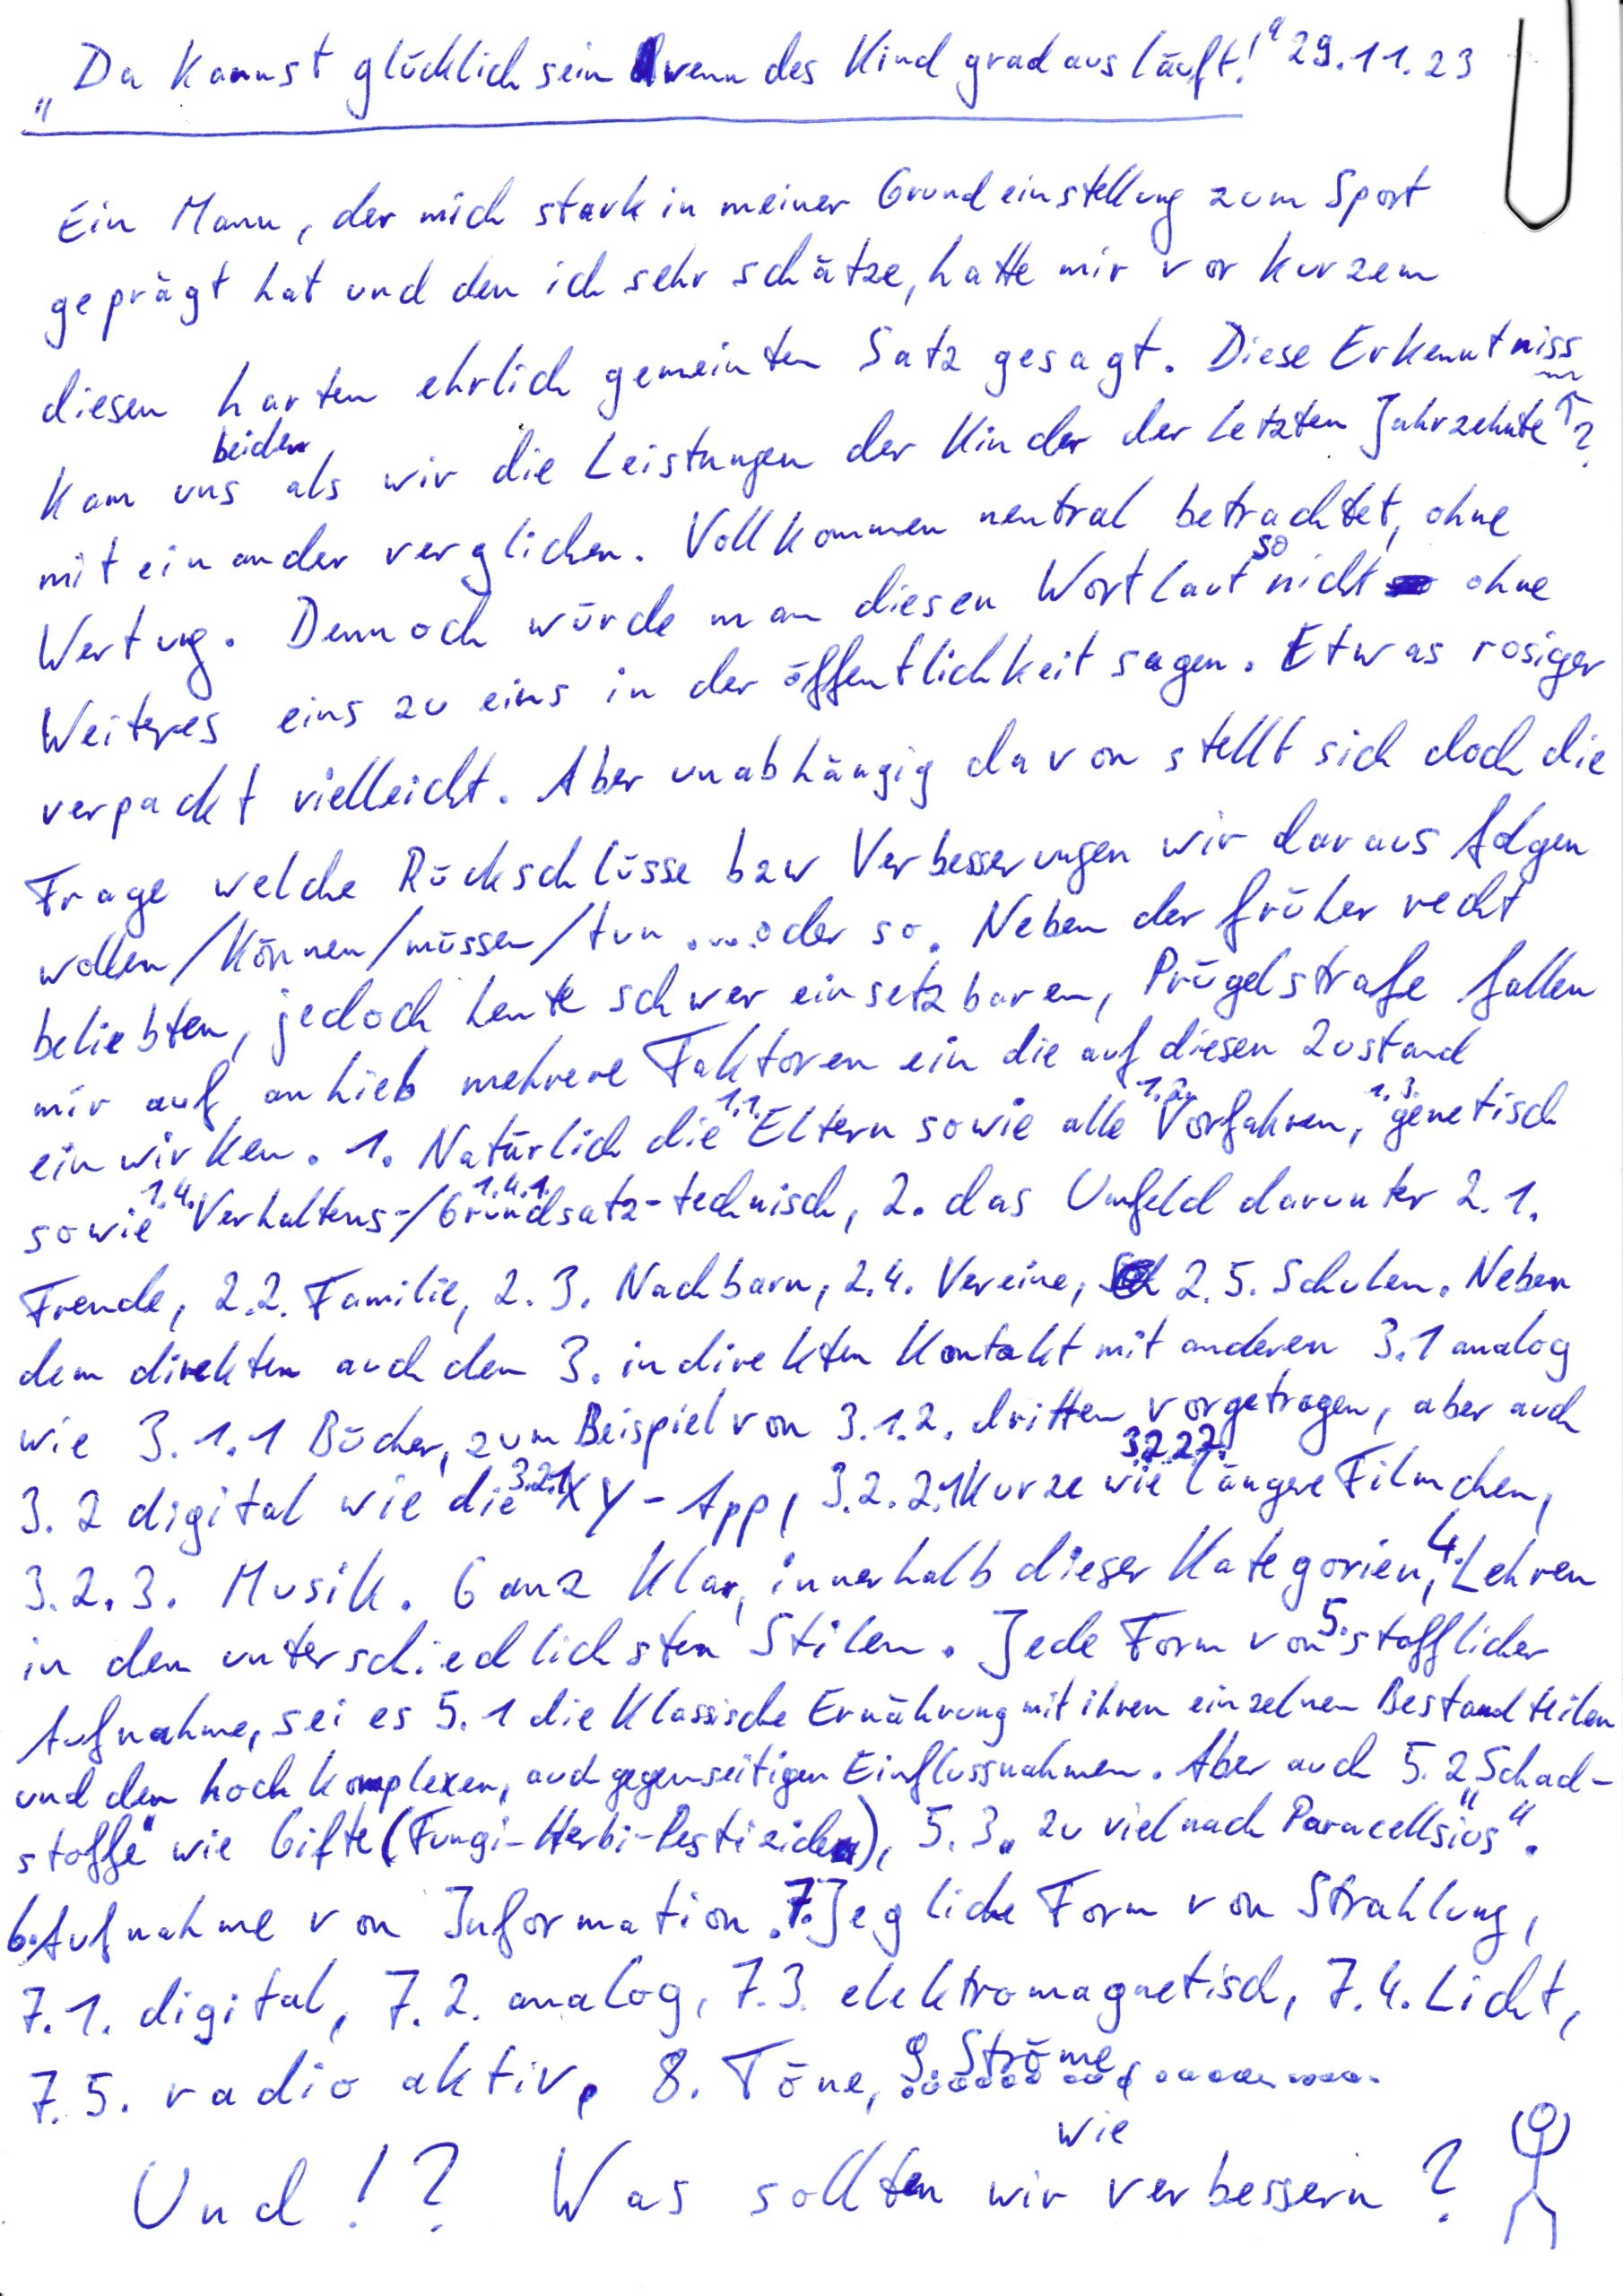 „Da kannst glücklich sein wenn des Kind gradaus läuft!“ 29.11.23
Ein Mann, der mich stark in meiner Grundeinstellung zum Sport
geprägt hat und den ich sehr schätze, hatte mir vor kurzem
diesen harten ehrlich gemeinten Satz gesagt. Diese Erkenntniss
kam uns beiden als wir die Leistungen der Kinder der letzten Jahrzehnte ↑?
miteinander verglichen. Vollkommen neutral betrachtet, ohne
Wertung. Dennoch würde man diesen Wortlaut so nicht ohne
Weiteres eins zu eins in der öffentlichkeit sagen. Etwas rosiger
verpackt vielleicht. Aber unabhängig davon stellt sich doch die
Frage welche Rückschlüsse bzw Verbesserungen wir daraus folgen
wollen/können/müssen/tun ....oder so. Neben der früher recht
beliebten, jedoch heute schwer einsetzbaren, Prügelstrafe fallen
mir auf anhieb mehrere Faktoren ein die auf diesen Zustand
einwirken. 1. Natürlich die 1.1. Eltern sowie alle 1.2. Vorfahren, 1.3. genetisch
sowie 1.4. Verhaltens-/1.4.1. Grundsatz-technisch, 2. das Umfeld darunter 2.1.
Freude, 2.2. Familie, 2.3. Nachbarn, 2.4. Vereine, 2.5. Schulen. Neben
dem direkten auch den 3. indirekten Kontakt mit anderen 3.1 analog
wie 3.1.1 Bücher, zum Beispiel von 3.1.2. dritten vorgetragen, aber auch
3.2 digital wie die 3.2.1 XY-App, 3.2.2.1 kurze wie 3.2.2.2. längere Filmchen,
3.2.3. Musik. Ganz klar, innerhalb dieser Kategorien, 4. Lehren
in den unterschiedlichsten Stilen. Jede Form von 5. stofflicher
Aufnahme, sei es 5.1 die klassische Ernährung mit ihren einzelnen Bestandteilen
und den hoch komplexen, auch gegenseitigen Einflussnahmen. Aber auch 5.2 „Schad-
stoffe“ wie Gifte (Fungi-Herbi-Pestiziden), 5.3. zu viel nach Paracellsius“.
6. Aufnahme von Information. 7. Jegliche Form von Strahlung,
7.1. digital, 7.2. analog, 7.3. elektromagnetisch, 7.4. Licht,
7.5. radioaktiv, 8. Töne, 9. Ströme ..............
Und!? Was sollten wir wie verbessern?